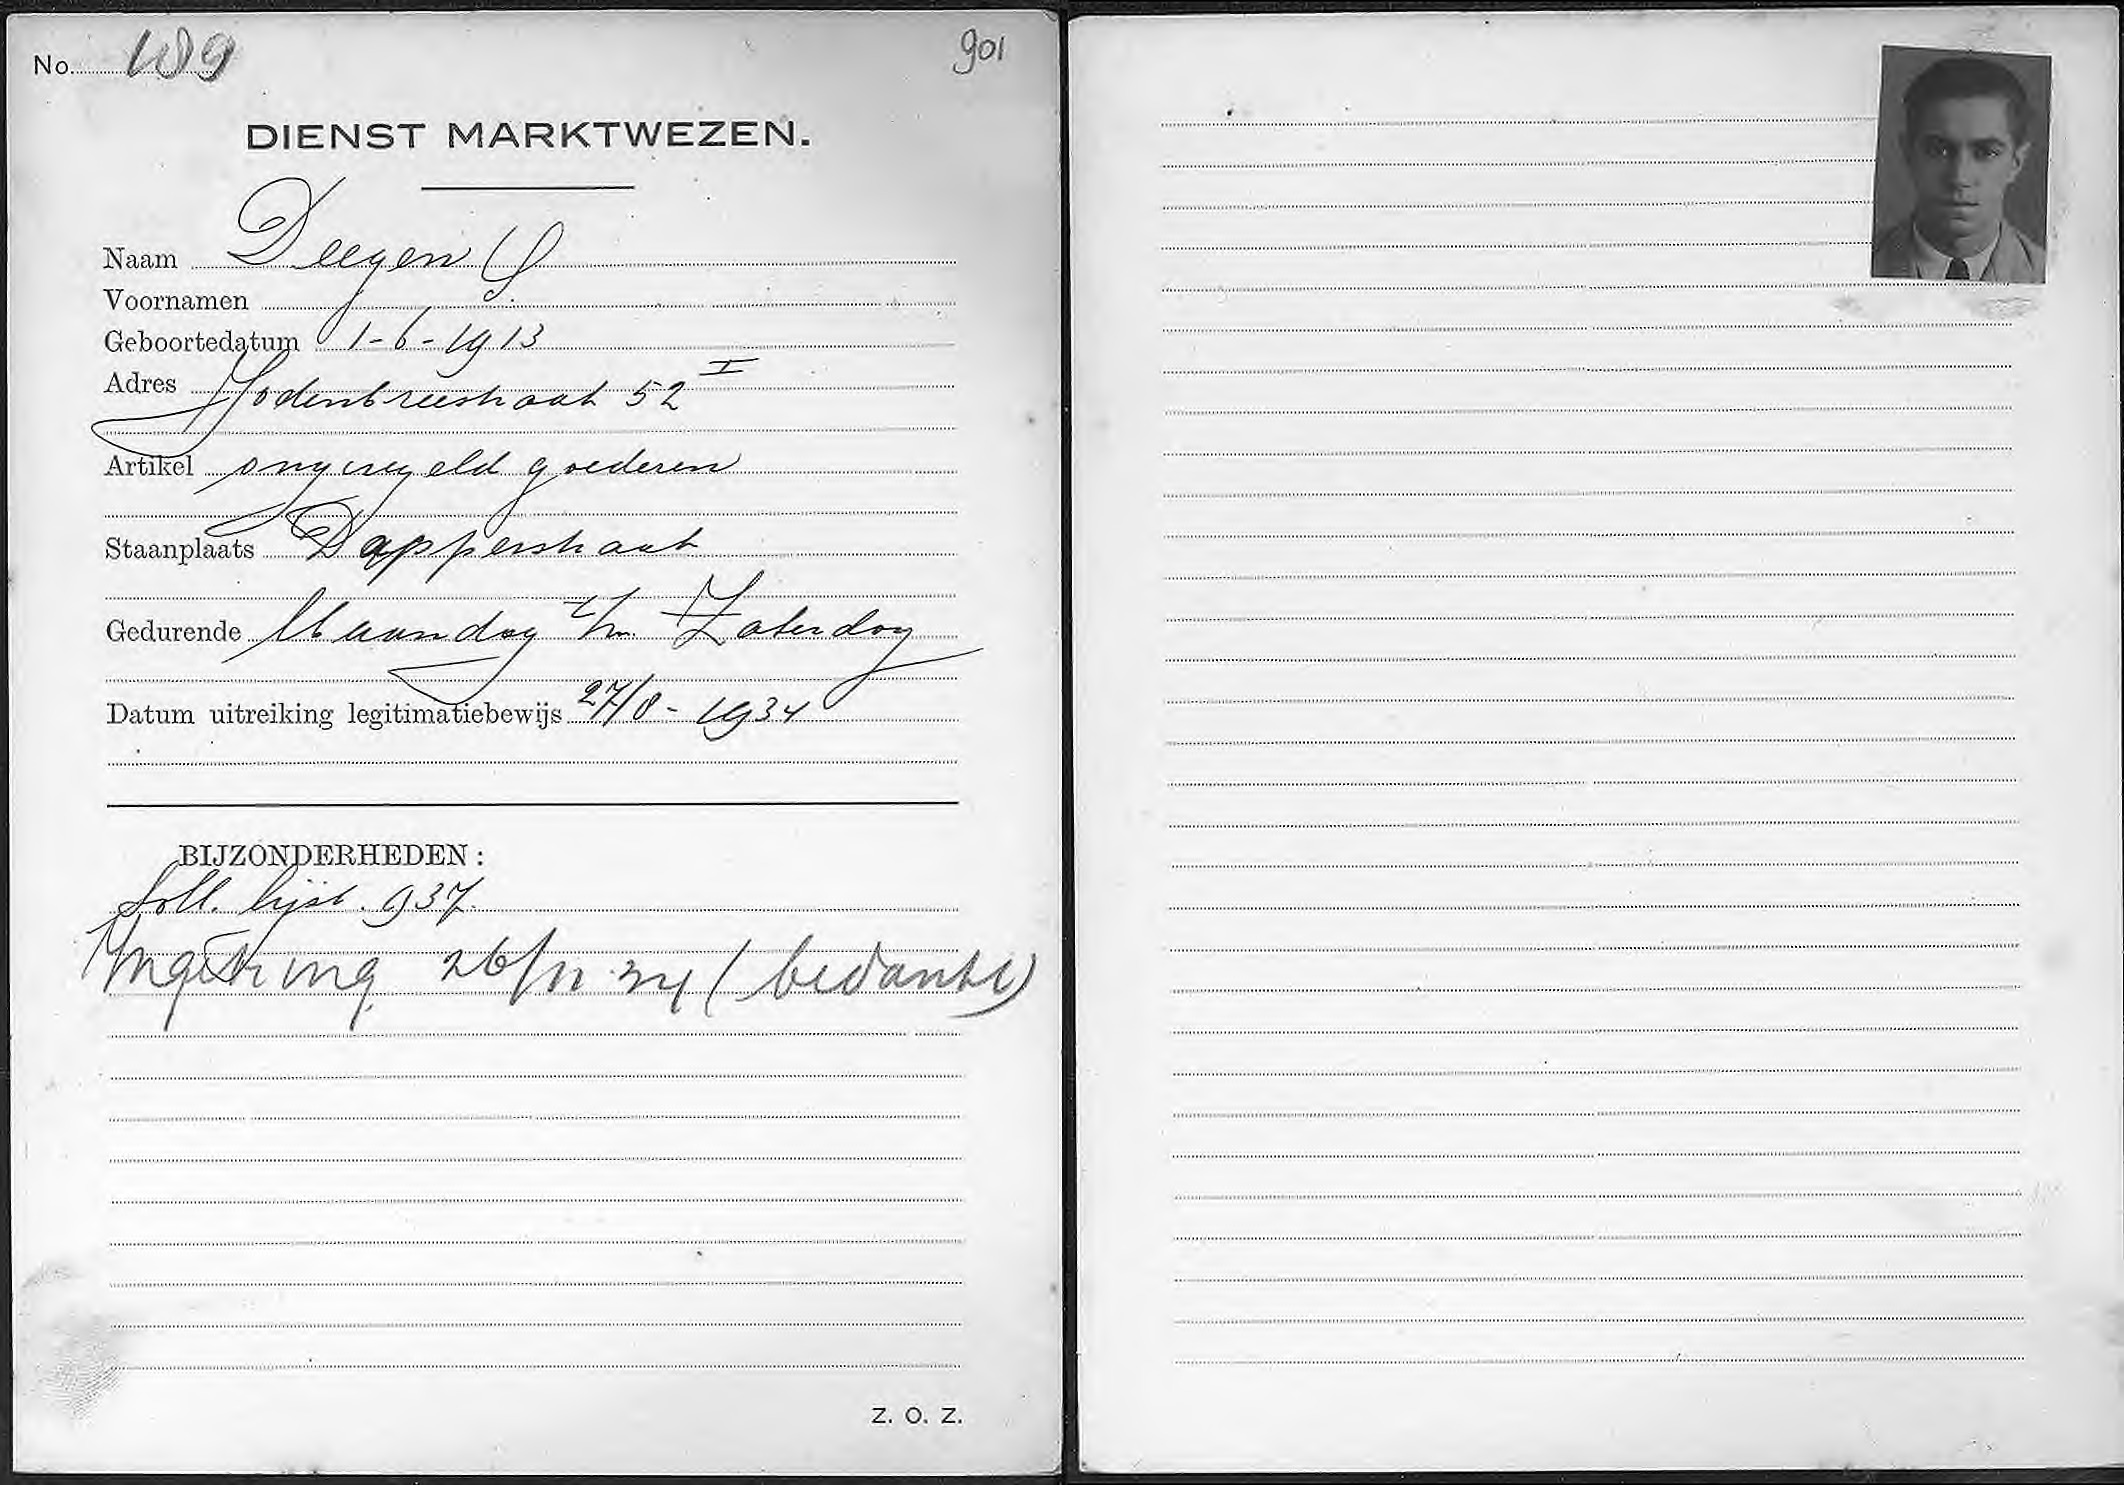 No. 109
901
DIENST MARKTWEZEN.
Naam Deegen S.
Voornamen
Geboortedatum 1-6-1913
Adres Jodenbreestraat 52 I
Artikel ongeregeld goederen
Staanplaats Dapperstraat
Gedurende Maandag t/m. Zaterdag
Datum uitreiking legitimatiebewijs 27/8-1934
BIJZONDERHEDEN:
Soll. lijst. 937.
Ingetr. 26/11 34 (bedankt)
Z. O. Z.